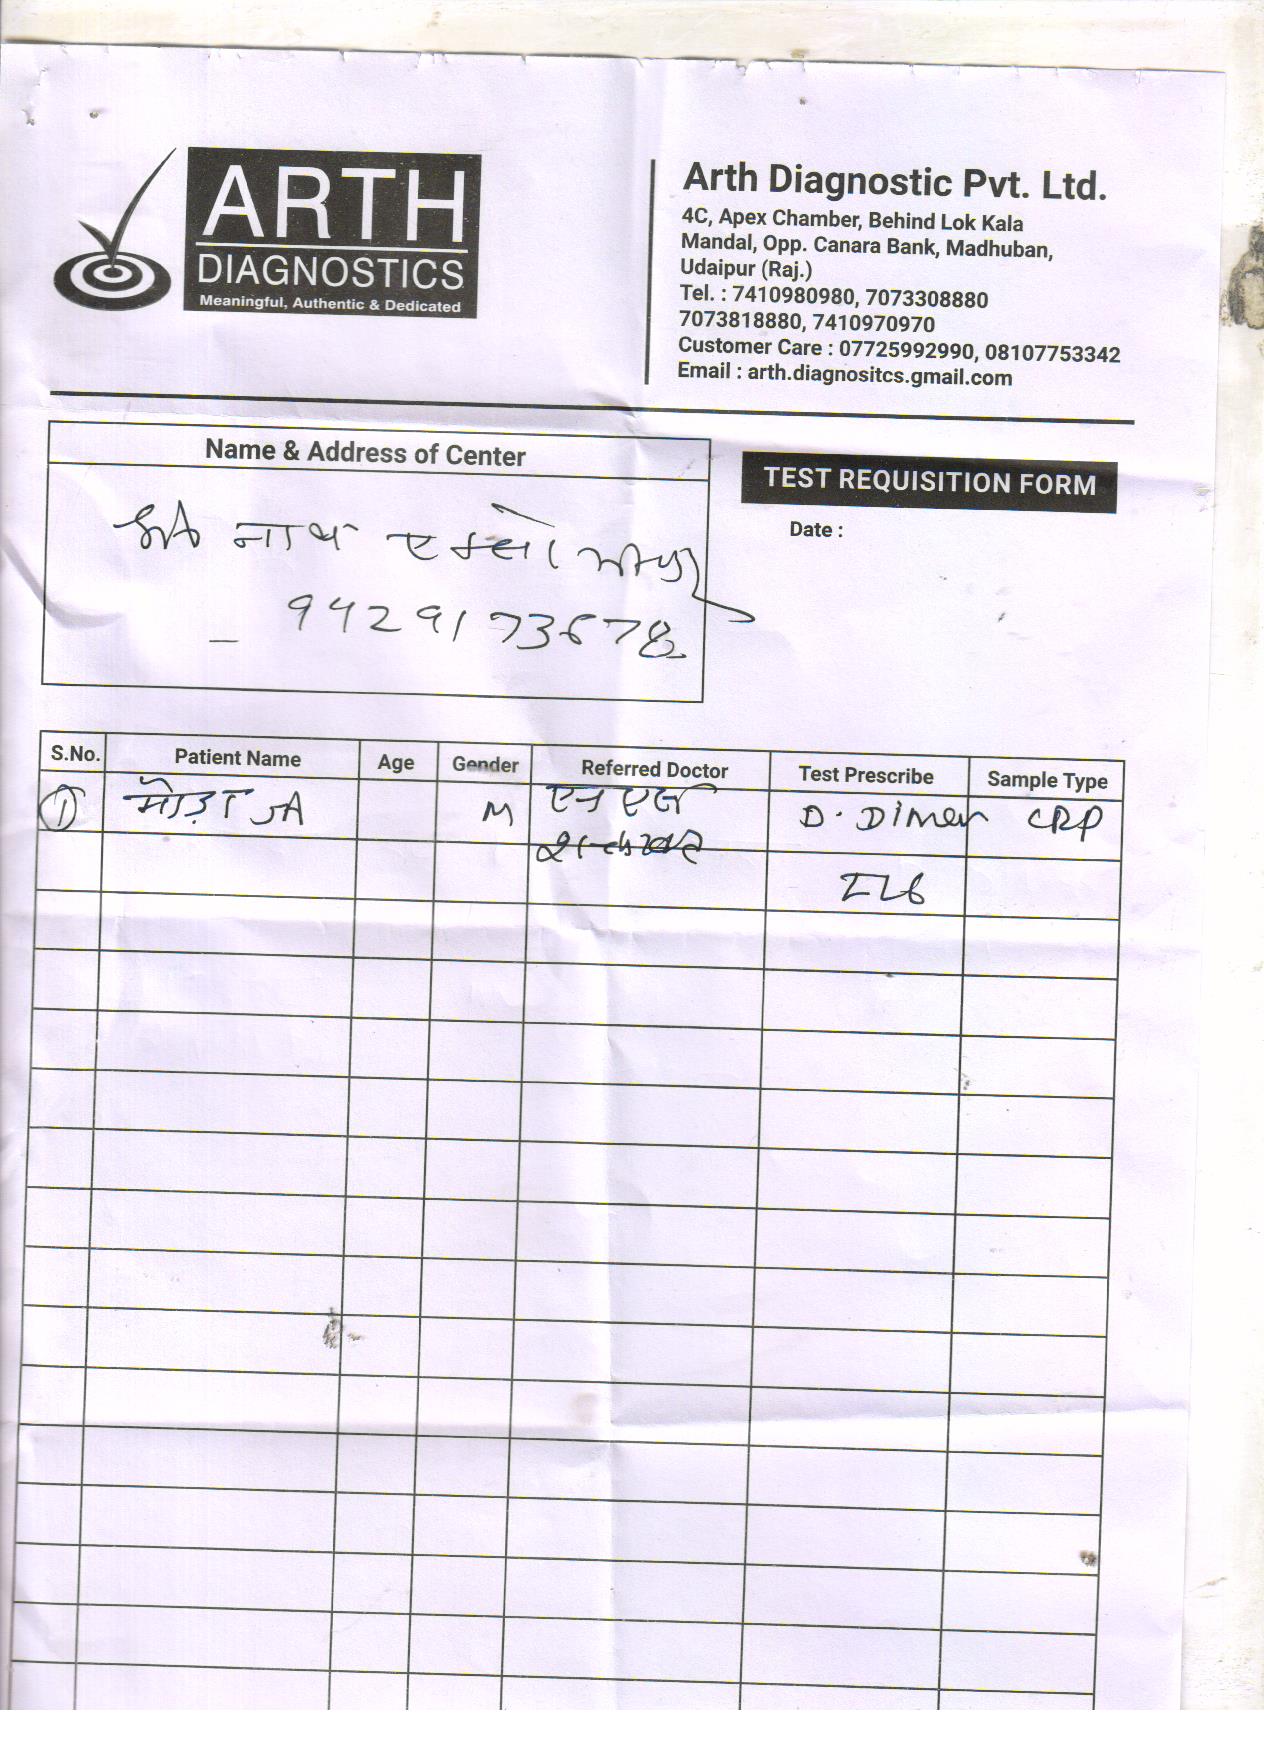 ARTH
DIAGNOSTICS
Meaningful, Authentic & Dedicated
Arth Diagnostic Pvt. Ltd.
4C, Apex Chamber, Behind Lok Kala
Mandal, Opp. Canara Bank, Madhuban,
Udaipur (Raj.)
Tel. : 7410980980, 7073308880
7073818880, 7410970970
Customer Care : 07725992990, 08107753342
Email : arth.diagnositcs.gmail.com
Name & Address of Center
TEST REQUISITION FORM
Date :
नाथ
9429173678
S.No. Patient Name Age Gender Referred Doctor Test Prescribe Sample Type
1 M D. Dimer CRP
IL6